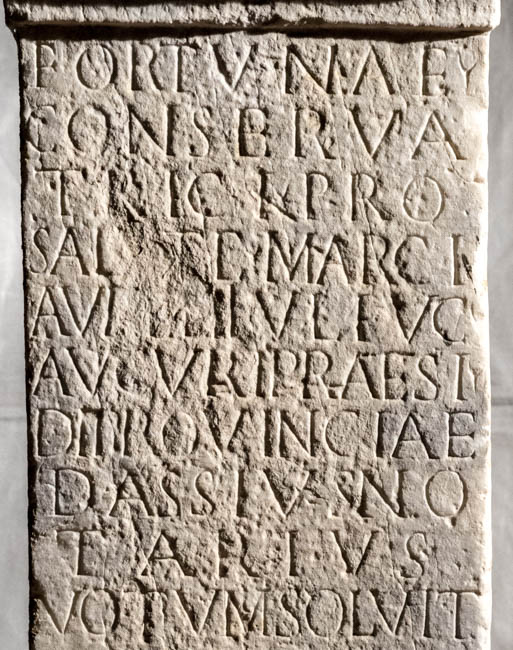 FORTVNAE
CONSERVA
TRICI PRO
SALVTE MARCI
IVLI
AVGVRI PRAESI
DI PROVINCIAE
DASSIVS NO
TARIVS
VOTVM SOLVIT